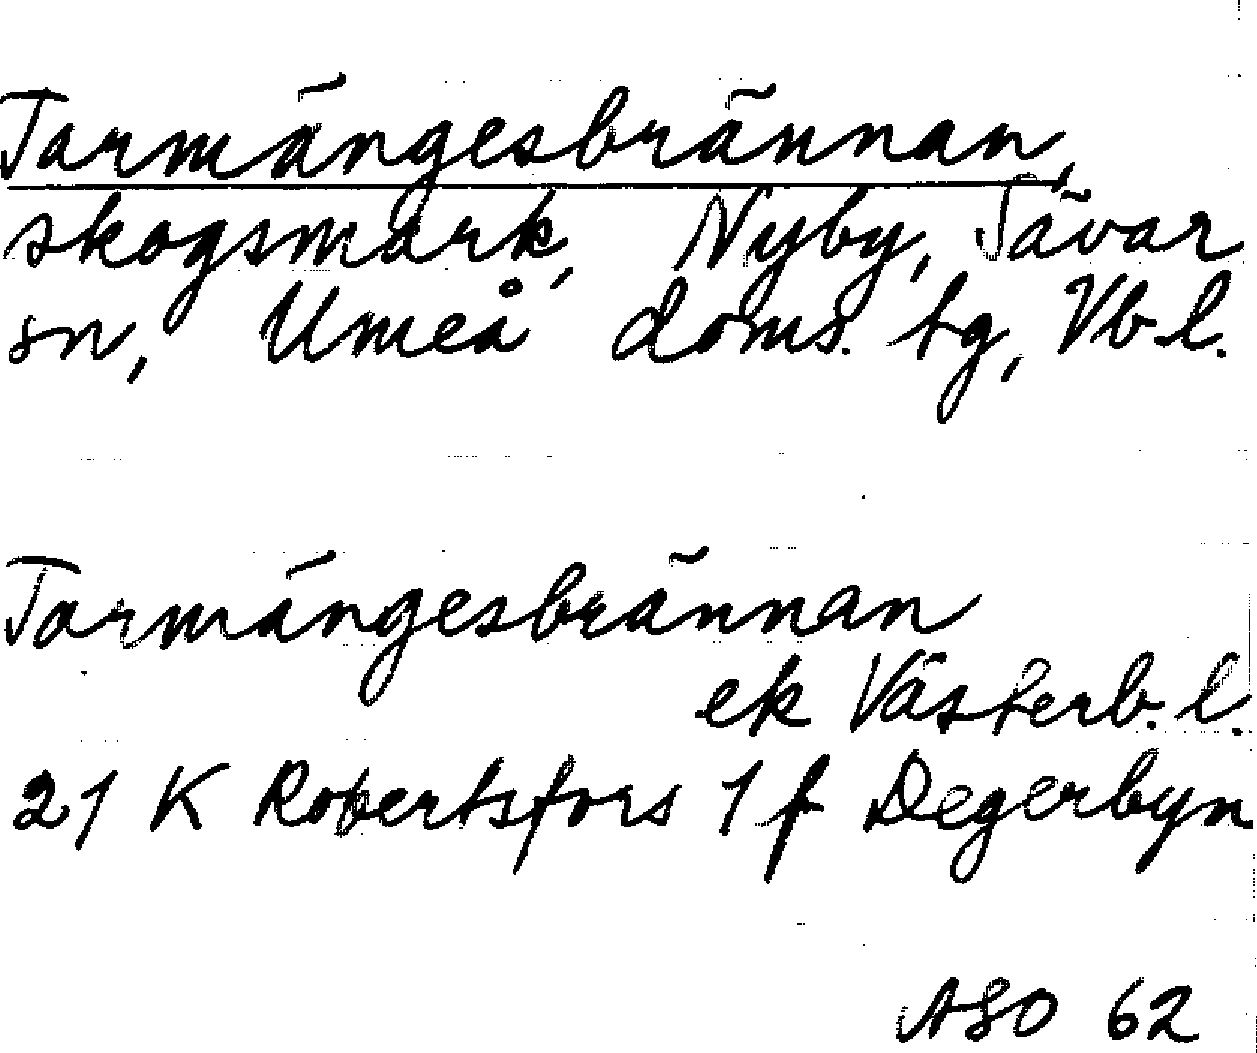 Tarmängesbrännan,
skogsmark, Nyby, Sävar
sn, Umeå doms. tg, Vb. l.
Tarmängesbrännan
ek Västerb. l.
21 K Robertsfors 1 f Degerbyn
ASO 62